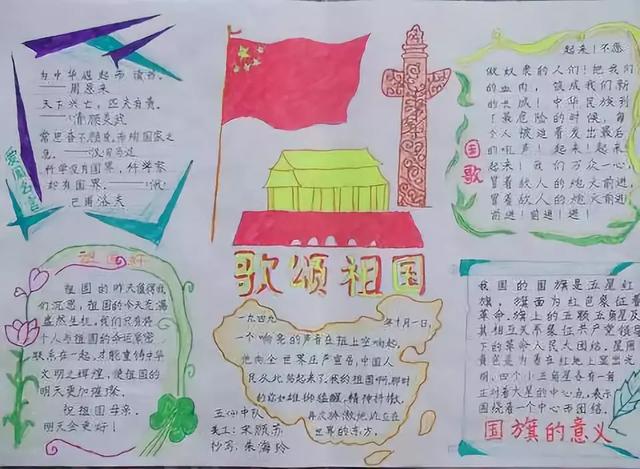 为中华崛起而读书。
——周恩来
天下兴亡，匹夫有责。
常思奋不顾身，而殉国家之
急。
科学没有国界，科学家
却有国界。
巴甫洛夫
爱国名言
歌颂祖国
起来！不愿
做奴隶的人们！把我们
的血肉，筑成我们新
的长城！中华民族到
了最危险的时候，每
个人被迫着发出最后
的吼声！起来！起来！
起来！我们万众一心，
冒着敌人的炮火前进，
冒着敌人的炮火前进！
前进！前进！进！
国歌
祖国的昨天值得我
们沉思，祖国的今天充满
盎然生机。我们只有将
个人与祖国的命运紧密
联系在一起，才能重铸中华
文明之辉煌，使祖国的
明天更加璀璨。
祝祖国母亲，
明天会更好！
一九四九 年十月一日，
一个响亮的声音在班上空响起，
他向全世界庄严宣告，中国人
民从此站起来了。我的祖国啊，那时
的你如雄狮猛醒，精神抖擞，
再次骄傲地屹立在
世界的东方。
五(4)中队
美工：宋顺苏
抄写：朱海玲
我国的国旗是五星红
旗，旗面为红色象征着
革命。旗上的五颗五角星及
其相互关系象征共产党领导
下的革命人民大团结。星用
黄色是为着在红地上显出光
明，四个小五角星各有一角
正对着大星的中心点，表示
围绕着一个中心而团结。
国旗的意义